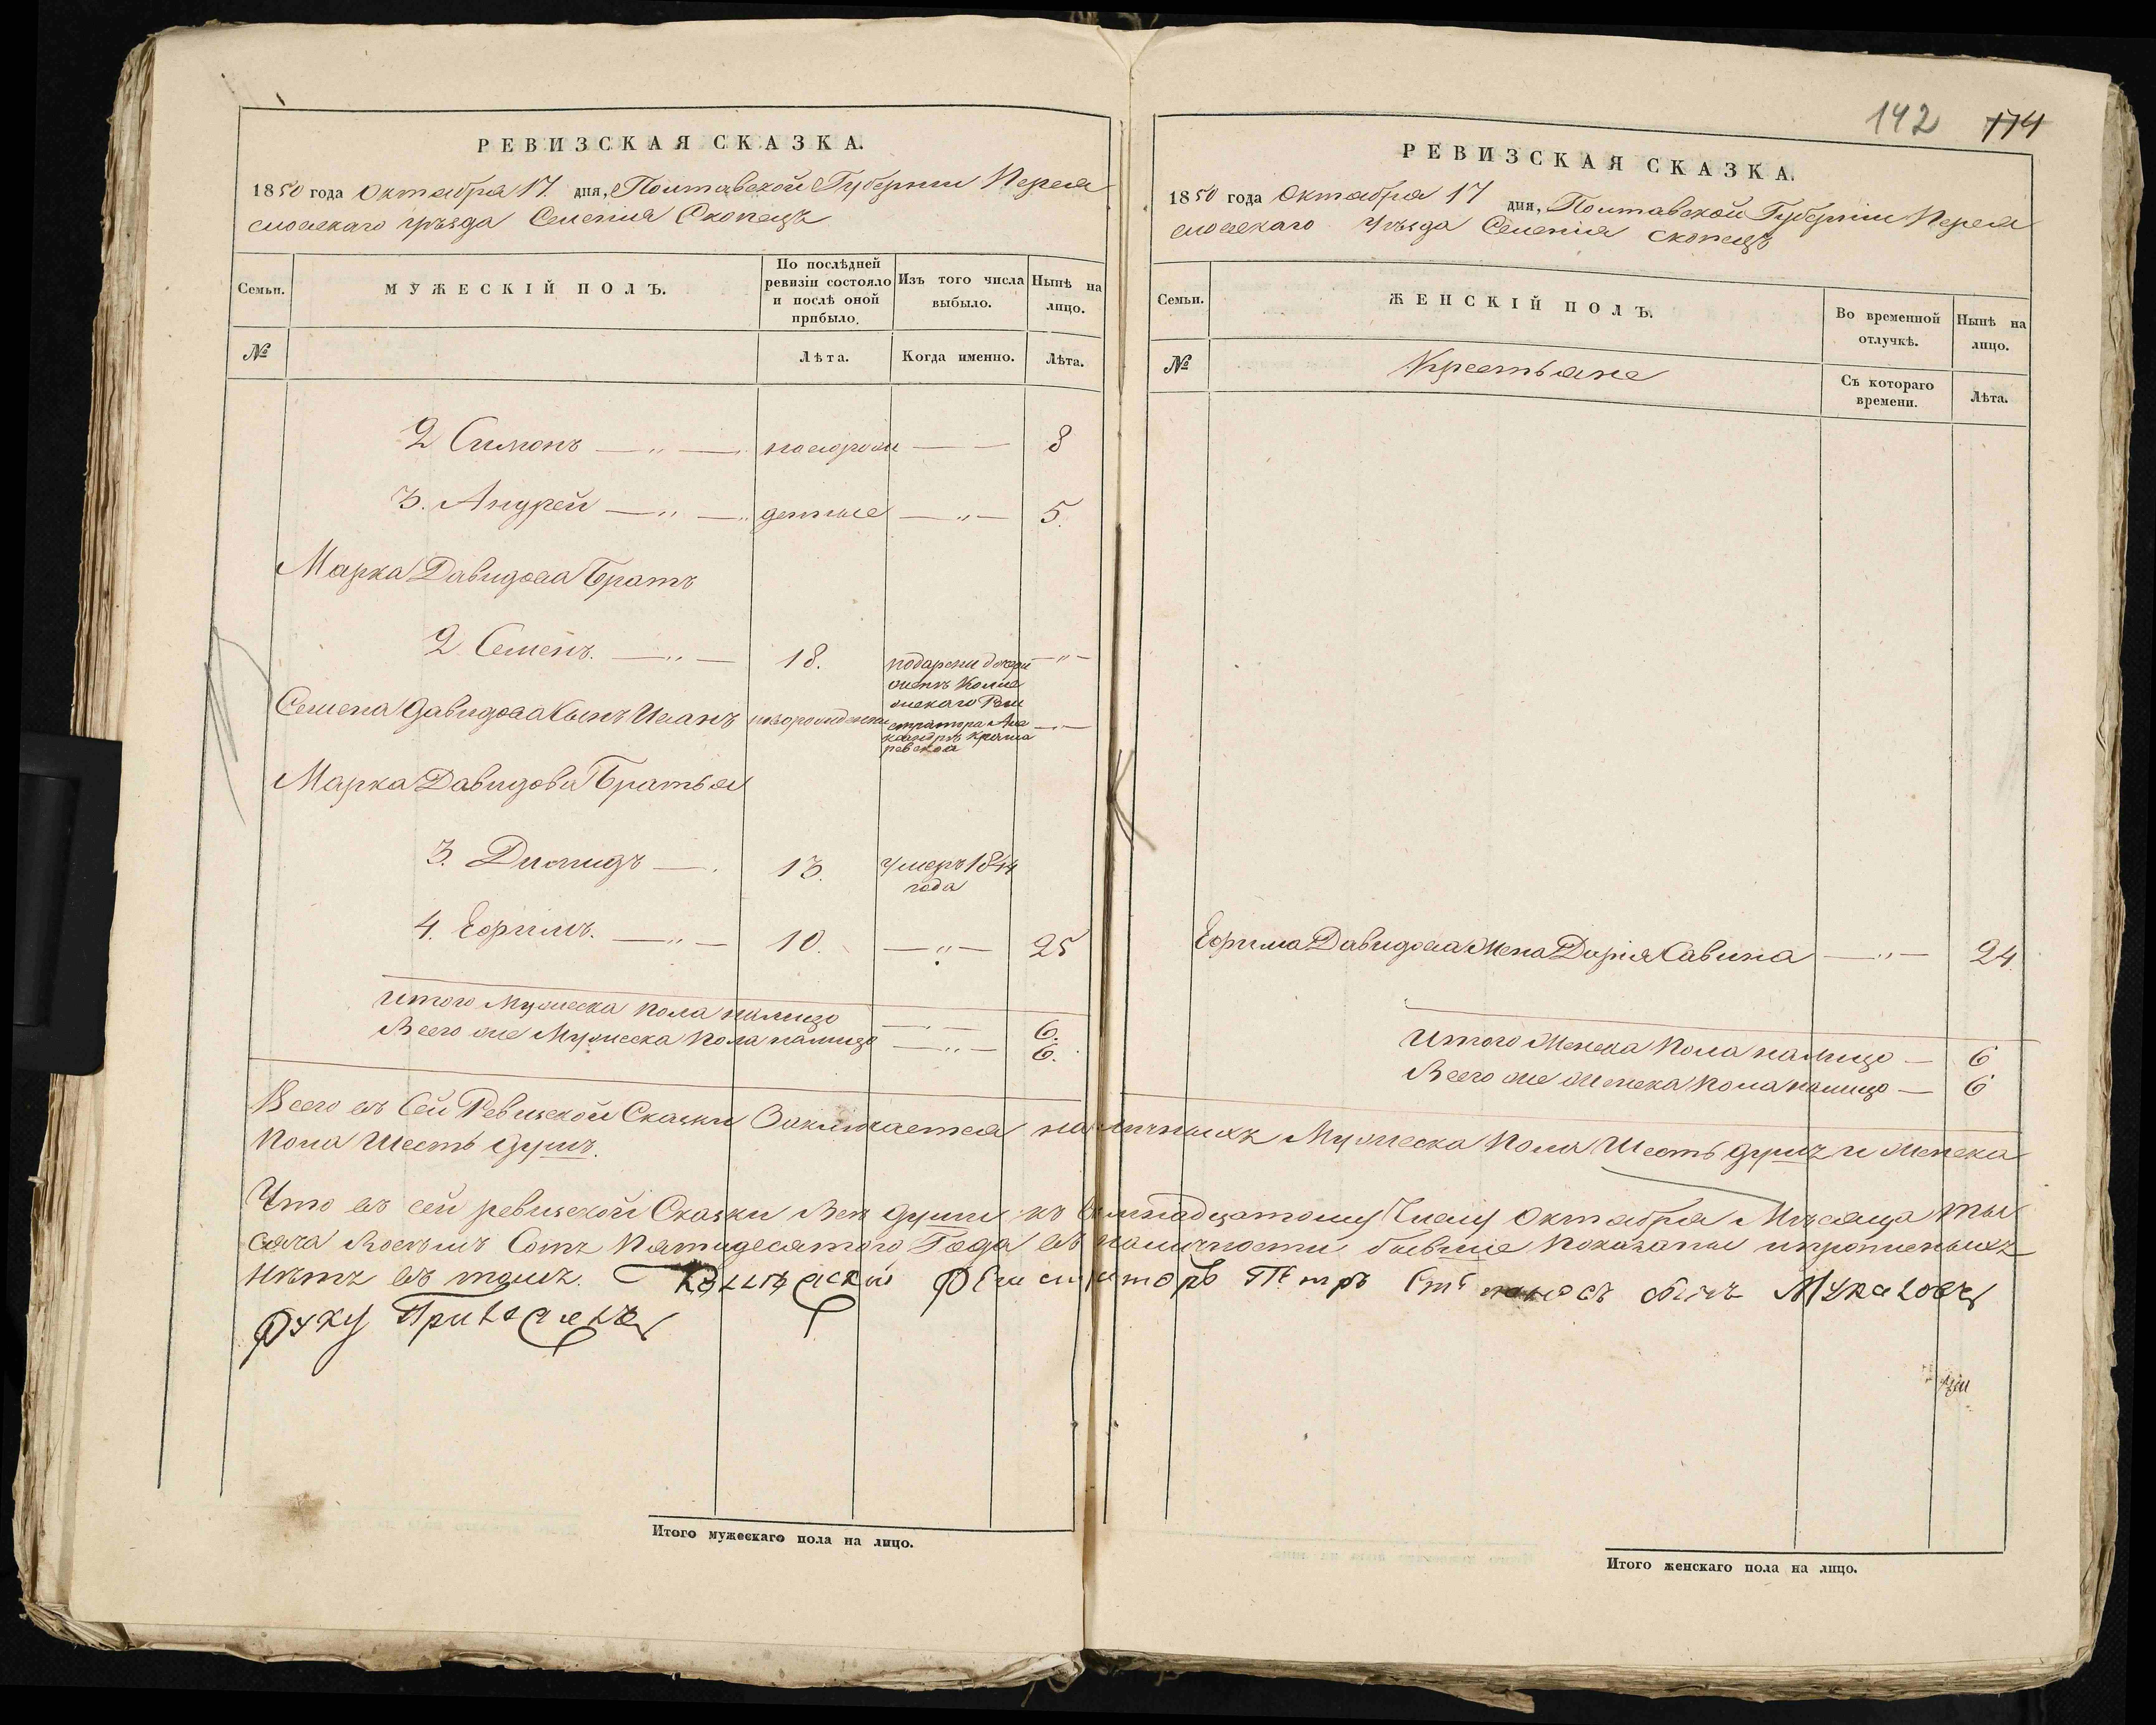 РЕВИЗСКАЯ СКАЗКА.
1850 года Октября 17. дня, Полтавской Губернии Перея
славскаго уѣзда Селенія Скопецъ
Семьи.
МУЖЕСКІЙ ПОЛЪ.
По послѣдней ревизіи состояло и послѣ оной прибыло.
Изъ того числа выбыло.
Нынѣ на лицо.
№
Лѣта.
Когда именно.
Лѣта.
2 Симонъ — „ — новорож — — 8
3. Андрей — „ — денные — „ — 5.
Марка Давидова Братъ
2 Семенъ. — „ — 18. — „ —
Семена Давидова Сынъ Иванъ новорожденн — „ —
подарени дочери
Колле
жскаго Реги
стратора Але
Марка Давидова Братья
3. Диомидъ — . 13. Умеръ 1844
года
4. Ефимъ. — „ — 10. — „ — 25
Итого Мужеска пола налицо — „ — 6.
Всего же Мужеска пола налицо — „ — 6.
142 174
РЕВИЗСКАЯ СКАЗКА.
1850 года Октября 17 дня, Полтавской Губерніи Перея
славскаго Уѣзда Селенія Скопецъ
Семьи.
ЖЕНСКІЙ ПОЛЪ.
Во временной отлучкѣ.
Нынѣ на лицо.
№
Крестьяне
Съ котораго времени.
Лѣта.
Ефима Давидова жена Дарія Савина — „ — 24.
Итого Женска пола налицо — 6
Всего же женска пола налицо — 6
Всего въ Сей Ревизской Сказки Заключается наличныхъ Мужеска пола Шесть душъ и женска
пола Шесть душъ.
Что въ сей ревизской Сказки Всѣ души къ Семнадцатому Числу Октября Мѣсяца тыс
сяча восѣмъ Сотъ пятидесятого Года въ наличности бывшие показаны и прописныхъ
нѣтъ въ томъ. Колѣжский Регистраторъ Петръ сынъ
Руку Приложилъ
Итого мужескаго пола на лицо.
Итого женскаго пола на лицо.